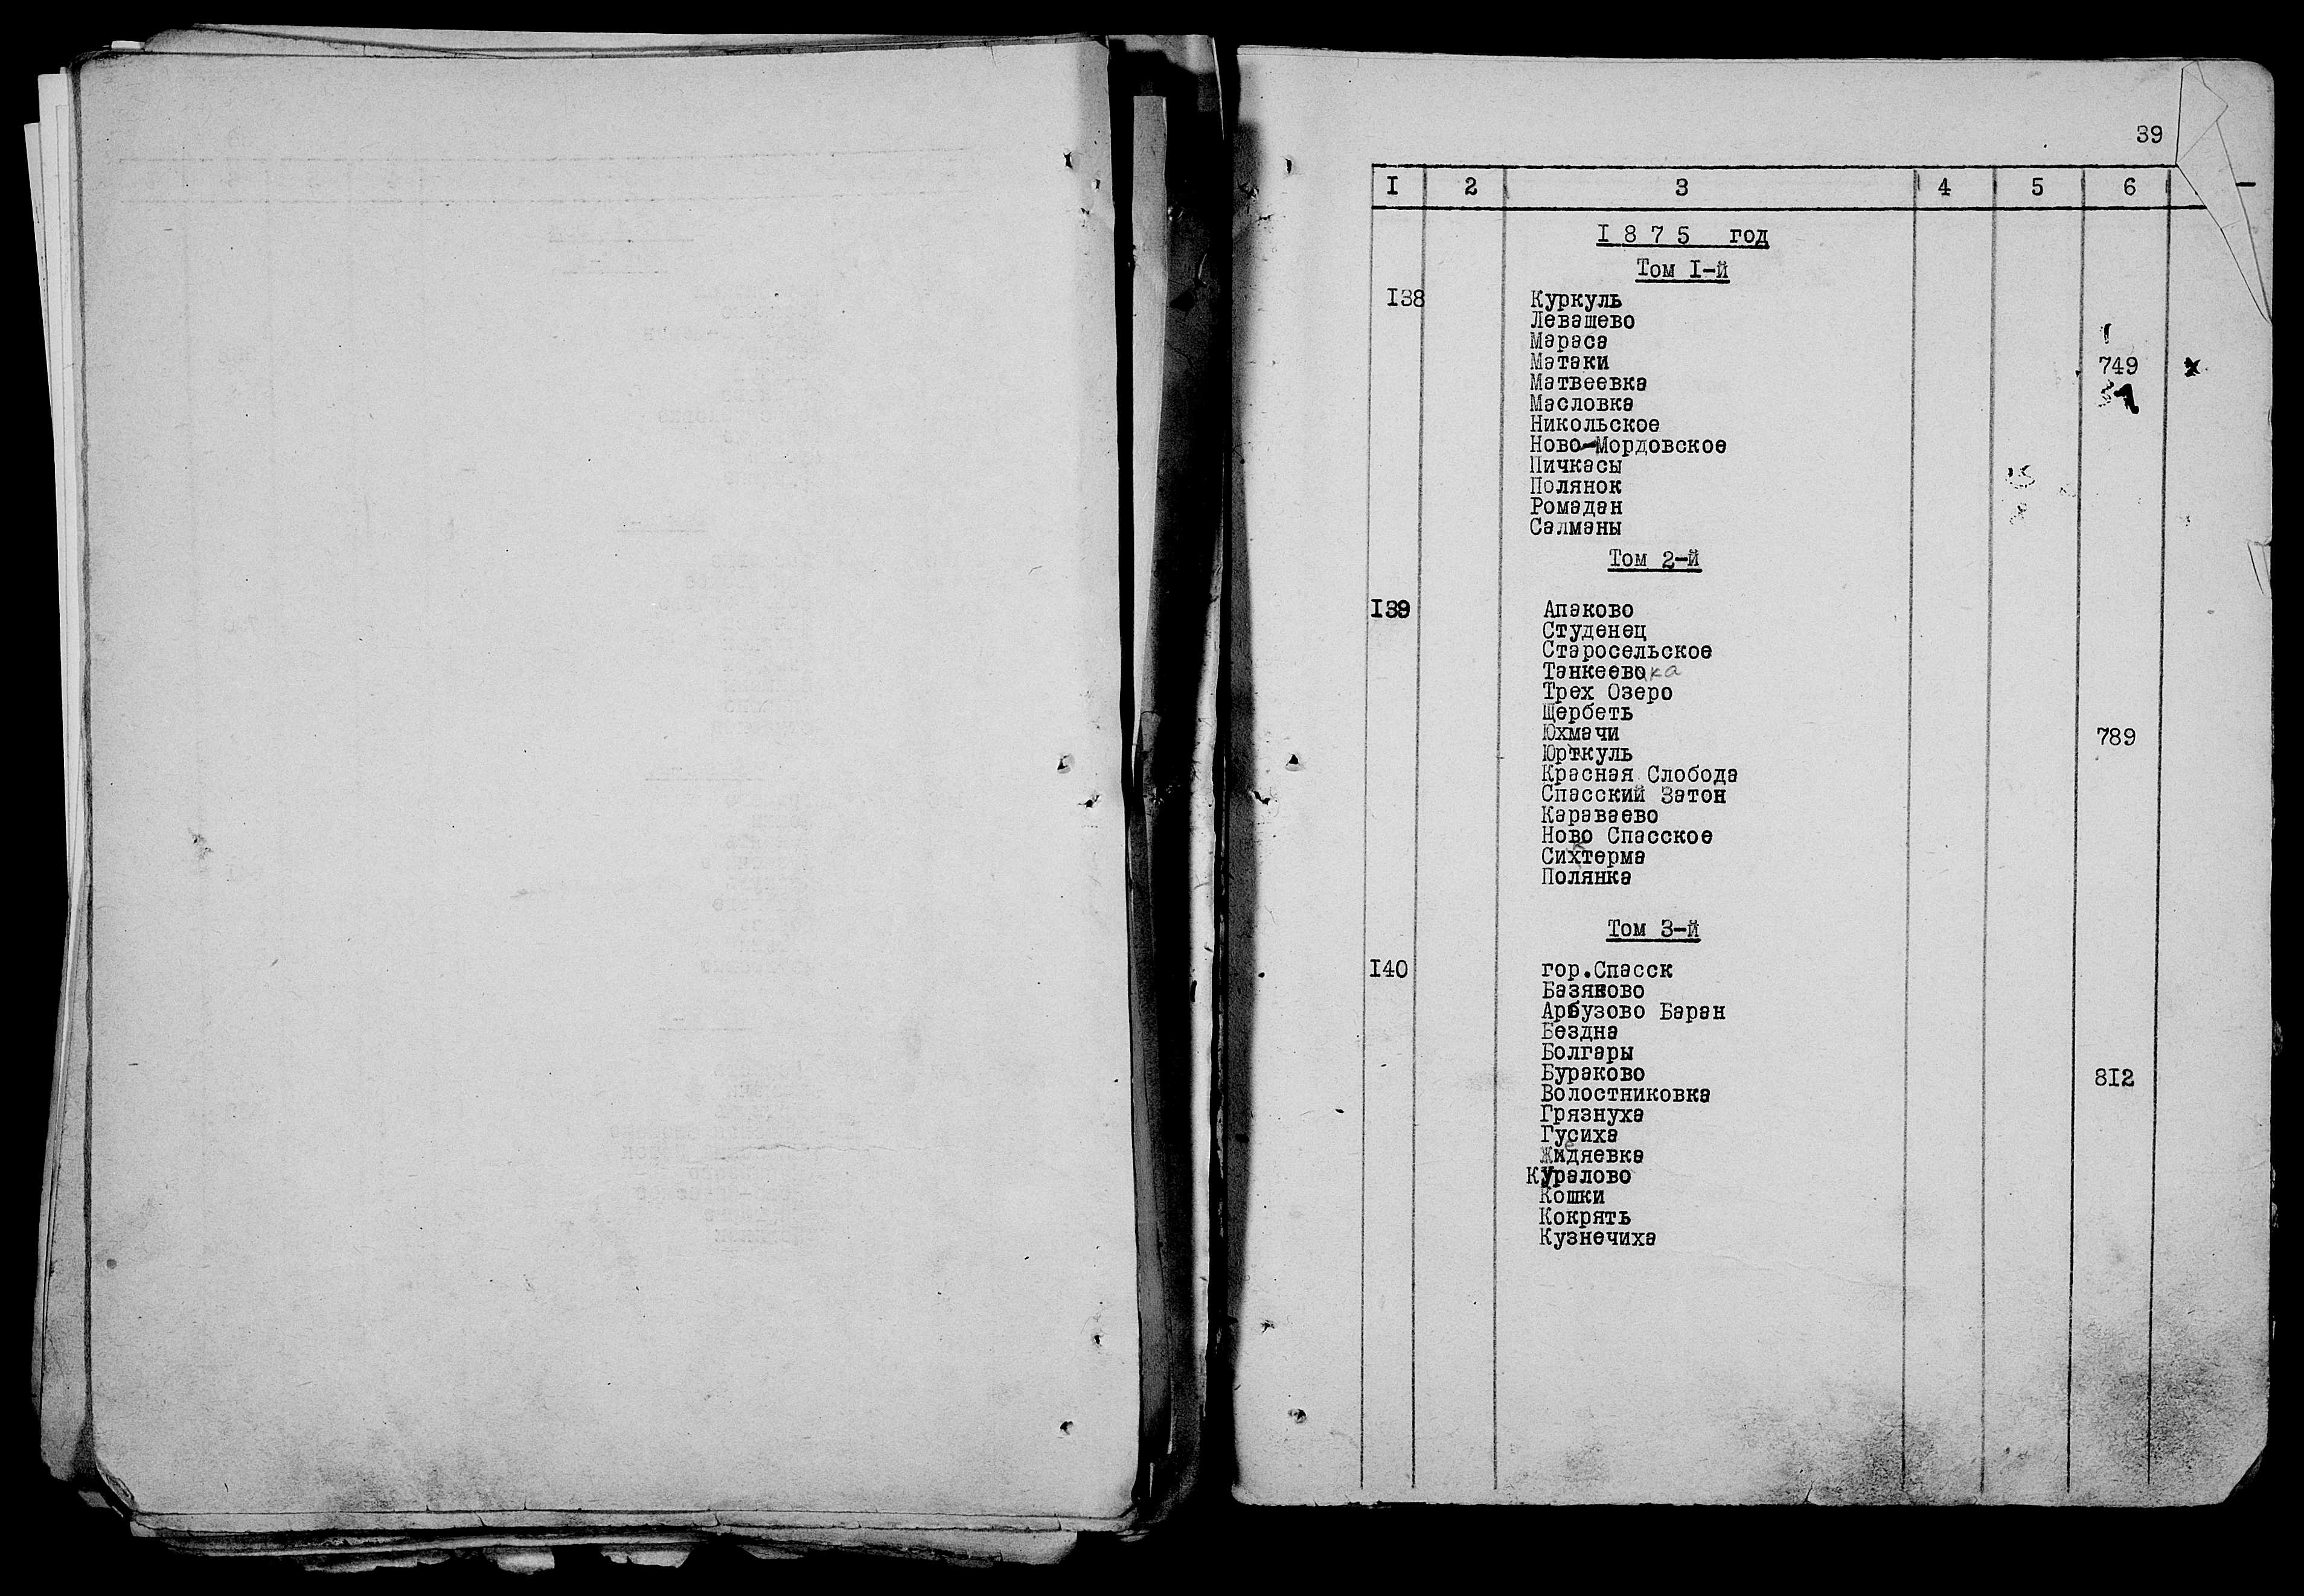 39
I 2 3 4 5 6
I 8 7 5 год
Том I-й
I38 Куркуль
Левашево
Мараса
Матаки 749 x
Матвеевка
Масловка
Никольское
Ново-Мордовское
Пичкасы
Полянок
Ромадан
Салманы
Том 2-й
I39 Апаково
Студенец
Старосельское
Танкеевока
Трех Озеро
Щербеть
Юхмачи 789
Юрткуль
Красная Слобода
Спасский Затон
Караваево
Ново Спасское
Сихтерма
Полянка
Том 3-й
I40 гор.Спасск
Базяково
Арбузово Баран
Бездна
Болгары
Бураково 8I2
Волостниковка
Грязнуха
Гусиха
Жидяевка
Куралово
Кошки
Кокрять
Кузнечиха